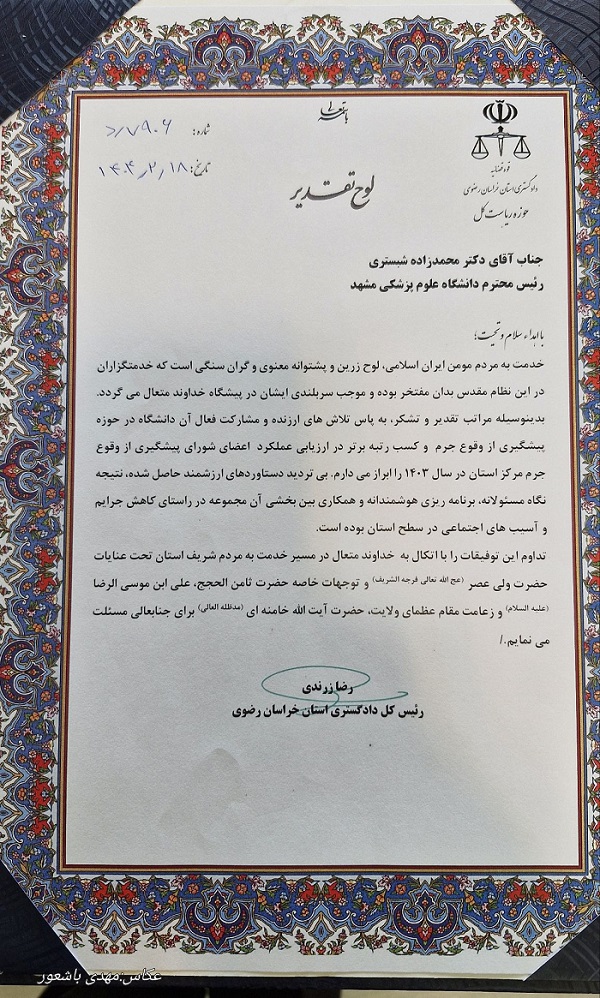 باسمه تعالی
قوه قضاییه
دادگستری استان خراسان رضوی
حوزه ریاست کل
شماره:
تاریخ: ۱۴۰۴٫۲٫۱۸
لوح تقدیر
جناب آقای دکتر محمدزاده شبستری
رئیس محترم دانشگاه علوم پزشکی مشهد
با اهداء سلام و تحیت؛
خدمت به مردم مومن ایران اسلامی، لوح زرین و پشتوانه معنوی و گران سنگی است که خدمتگزاران
در این نظام مقدس بدان مفتخر بوده و موجب سربلندی ایشان در پیشگاه خداوند متعال می گردد.
بدینوسیله مراتب تقدیر و تشکر، به پاس تلاش های ارزنده و مشارکت فعال آن دانشگاه در حوزه
پیشگیری از وقوع جرم و کسب رتبه برتر در ارزیابی عملکرد اعضای شورای پیشگیری از وقوع
جرم مرکز استان در سال ۱۴۰۳ را ابراز می دارم. بی تردید دستاوردهای ارزشمند حاصل شده، نتیجه
نگاه مسئولانه، برنامه ریزی هوشمندانه و همکاری بین بخشی آن مجموعه در راستای کاهش جرایم
و آسیب های اجتماعی در سطح استان بوده است.
تداوم این توفیقات را با اتکال به خداوند متعال در مسیر خدمت به مردم شریف استان تحت عنایات
حضرت ولی عصر (عج الله تعالی فرجه الشریف) و توجهات خاصه حضرت ثامن الحجج، علی ابن موسی الرضا
(علیه السلام) و زعامت مقام عظمای ولایت، حضرت آیت الله خامنه ای (مدظله العالی) برای جنابعالی مسئلت
می نمایم./
رضا زرندی
رئیس کل دادگستری استان خراسان رضوی
عکاس:مهدی باشعور